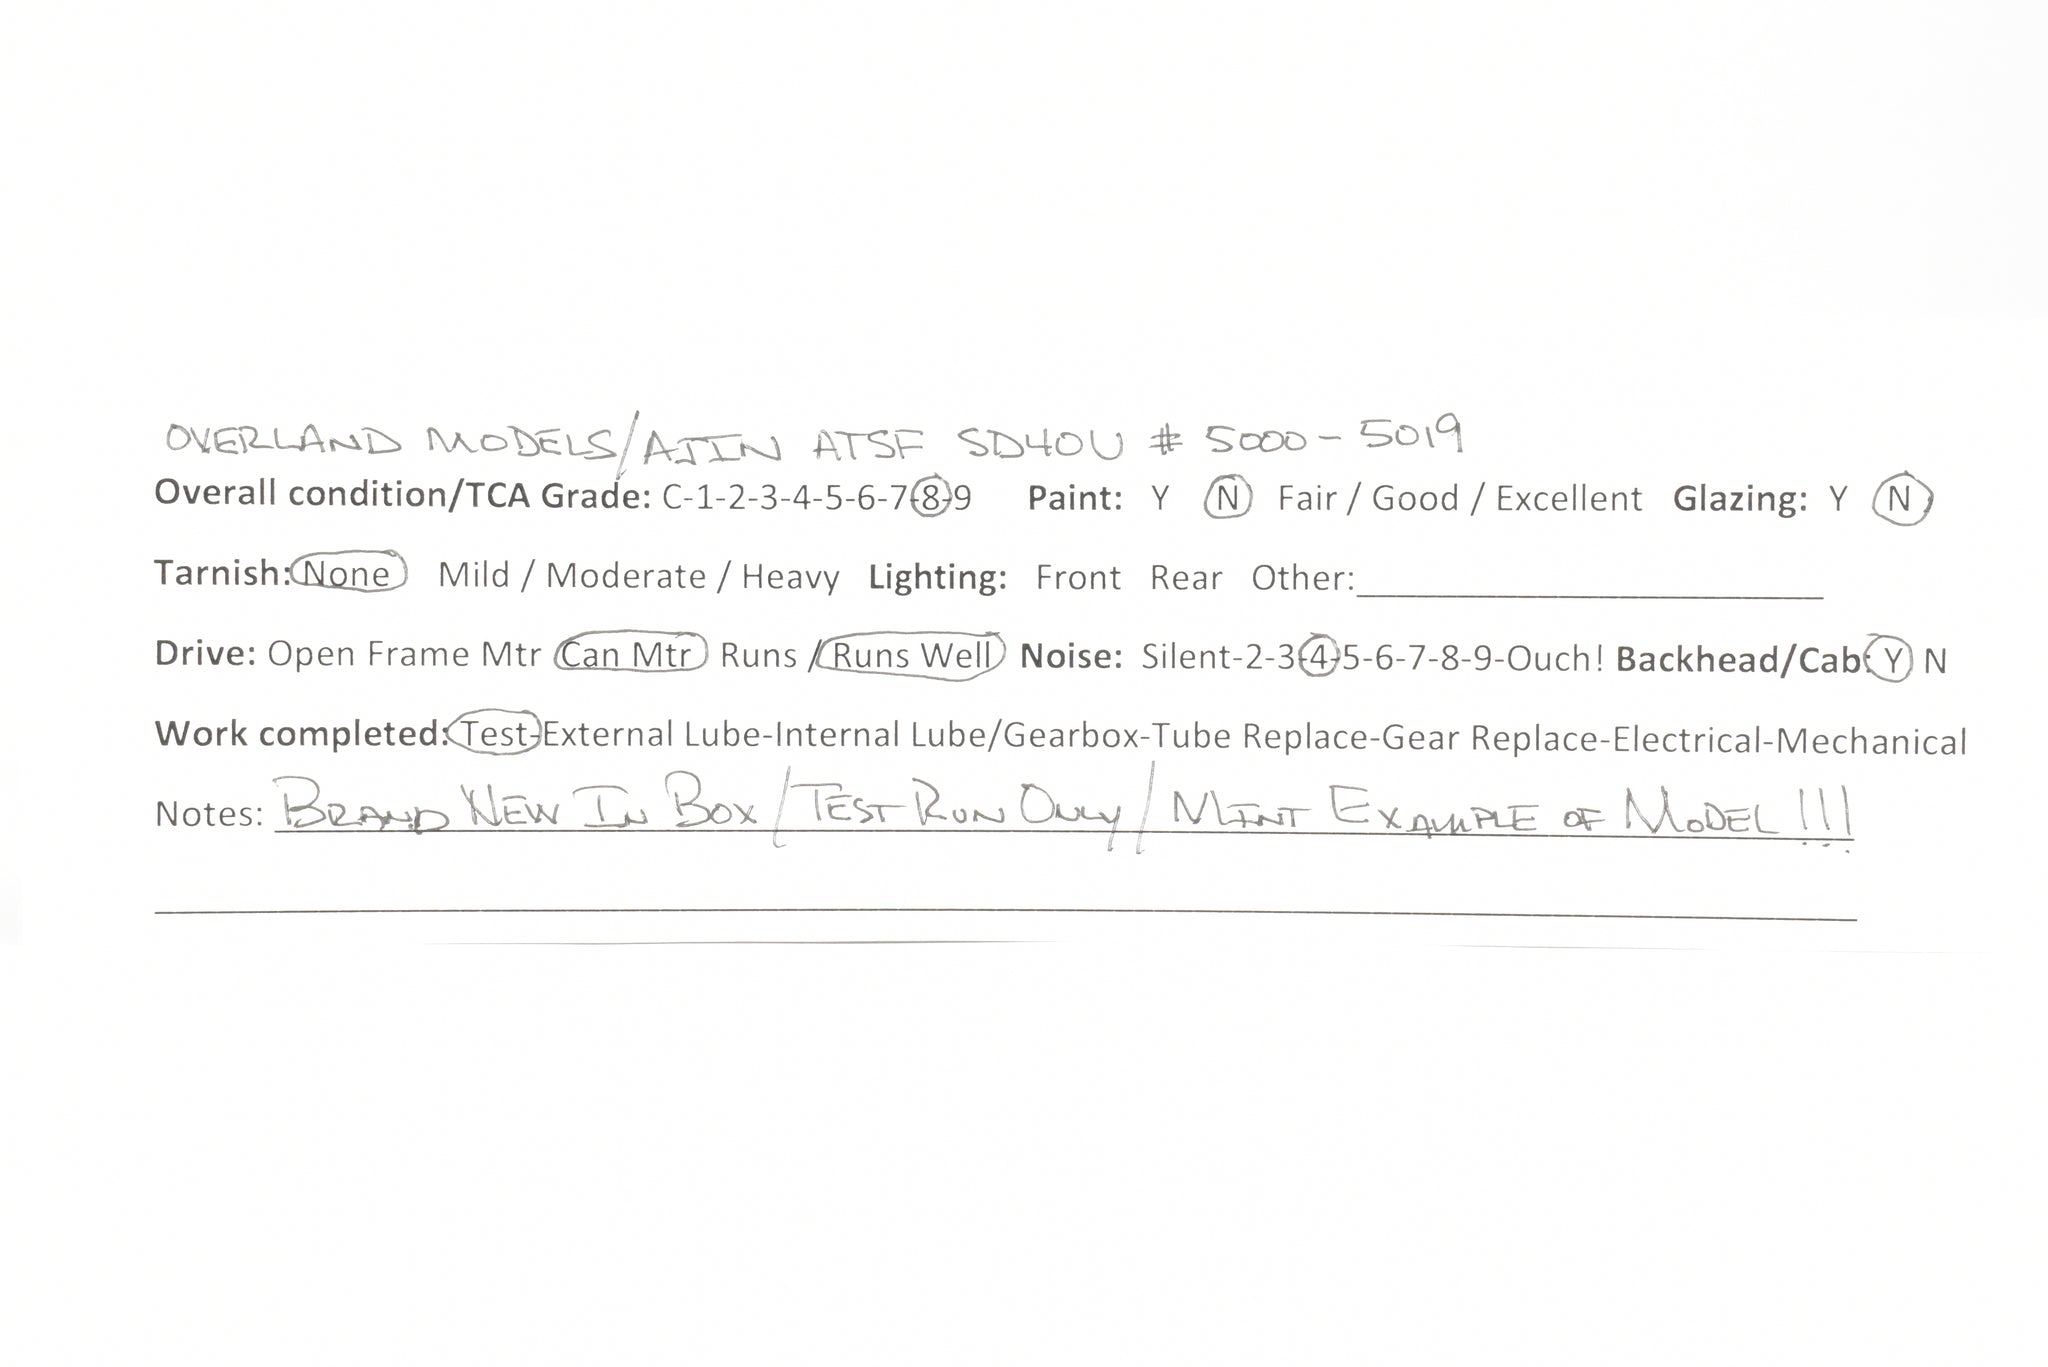 OVERLAND MODELS/AJIN ATSF SD40U # 5000-5019
Overall condition/TCA Grade: C-1-2-3-4-5-6-7-8-9 Paint: Y N Fair / Good / Excellent Glazing: Y N
Tarnish: None Mild / Moderate / Heavy Lighting: Front Rear Other:
Drive: Open Frame Mtr Can Mtr Runs / Runs Well Noise: Silent-2-3-4-5-6-7-8-9-Ouch! Backhead/Cab: Y N
Work completed: Test-External Lube-Internal Lube/Gearbox-Tube Replace-Gear Replace-Electrical-Mechanical
Notes: BRAND NEW IN BOX/TEST RUN ONLY/MINT EXAMPLE OF MODEL!!!